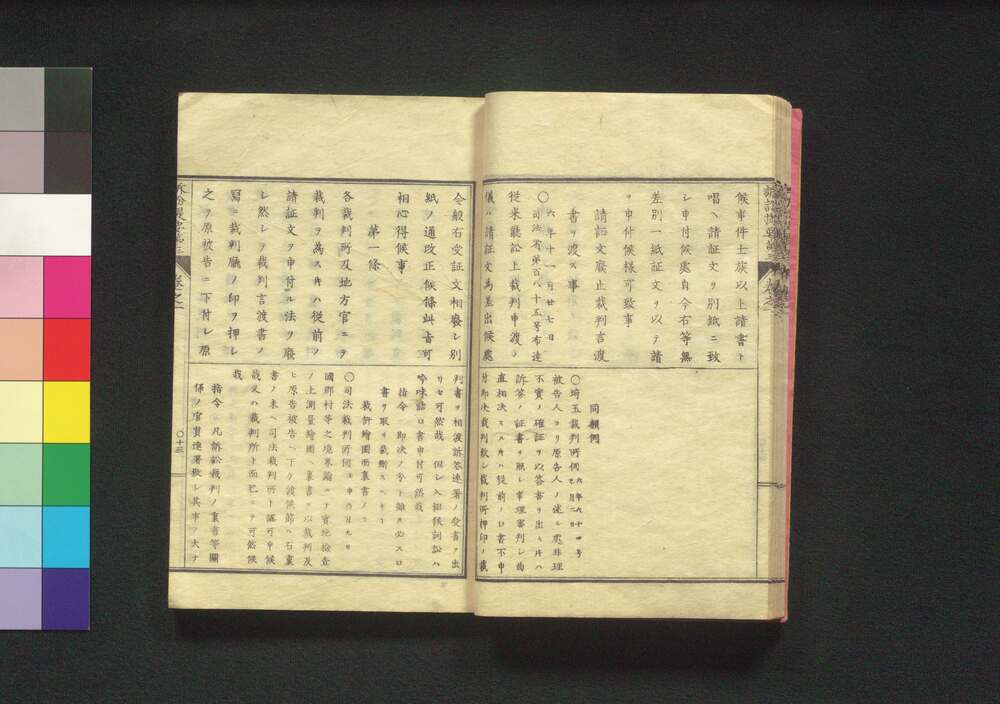 候事件士族以上請書ト
唱ヘ請証文ヲ別紙ニ致
シ申付候處自今右等無
差別一紙証文ヲ以テ請
ヲ申付候様可致事
請証文廢止裁判言渡
書ヲ渡ス事
〇六年十一月廿七日
司法省第百八十五号布達
従来聽訟上裁判申渡ノ
儀ハ請証文為差出候處
同願伺
〇埼玉裁判所伺
被告人ヨリ原告人ノ述ル處非理
不實ノ確証ヲ以答書ヲ出ス片ハ
訴答ノ証書ヲ照シ事理審判シ曲
直相决スル片ハ従前ノ口書不申
付即决裁判致シ裁判所押印ノ裁
今般右受証文相廢シ別
紙ノ通改正候條此旨可
相心得候事
第一條
各裁判所及地方官ニヲ
裁判ヲ為ス片ハ従前ノ
請証文ヲ申付ル法ヲ廢
シ然シテ裁判言渡書ノ
寫ニ裁判廳ノ印ヲ押シ
之ヲ原被告ニ下付シ原
判書ヲ相渡訴答連署ノ受書ヲ出
サセ可然哉 但シ入組候訶訟ハ
吟味詰口書申付可然哉
指令 即决ノ分ト雖𪜈必ス口
書ヲ取リ裁斷スヘキ
裁許繪圖面裏書ノ
〇司法裁判所伺
國郡村等之境界論ニテ實地檢査
ノ上測量繪圖ヘ裏書ヲ以裁判及
ヒ原告被告ヘ下ケ渡候節ハ右裏
書ノ末ヘ司法裁判所ト認可申候
哉又ハ裁判所ト而已ニテ可然候
哉
指令 凡訴訟裁判ノ裏書等關
係ノ官員連署致シ其事ノ大ナ
卷之一
〇十三